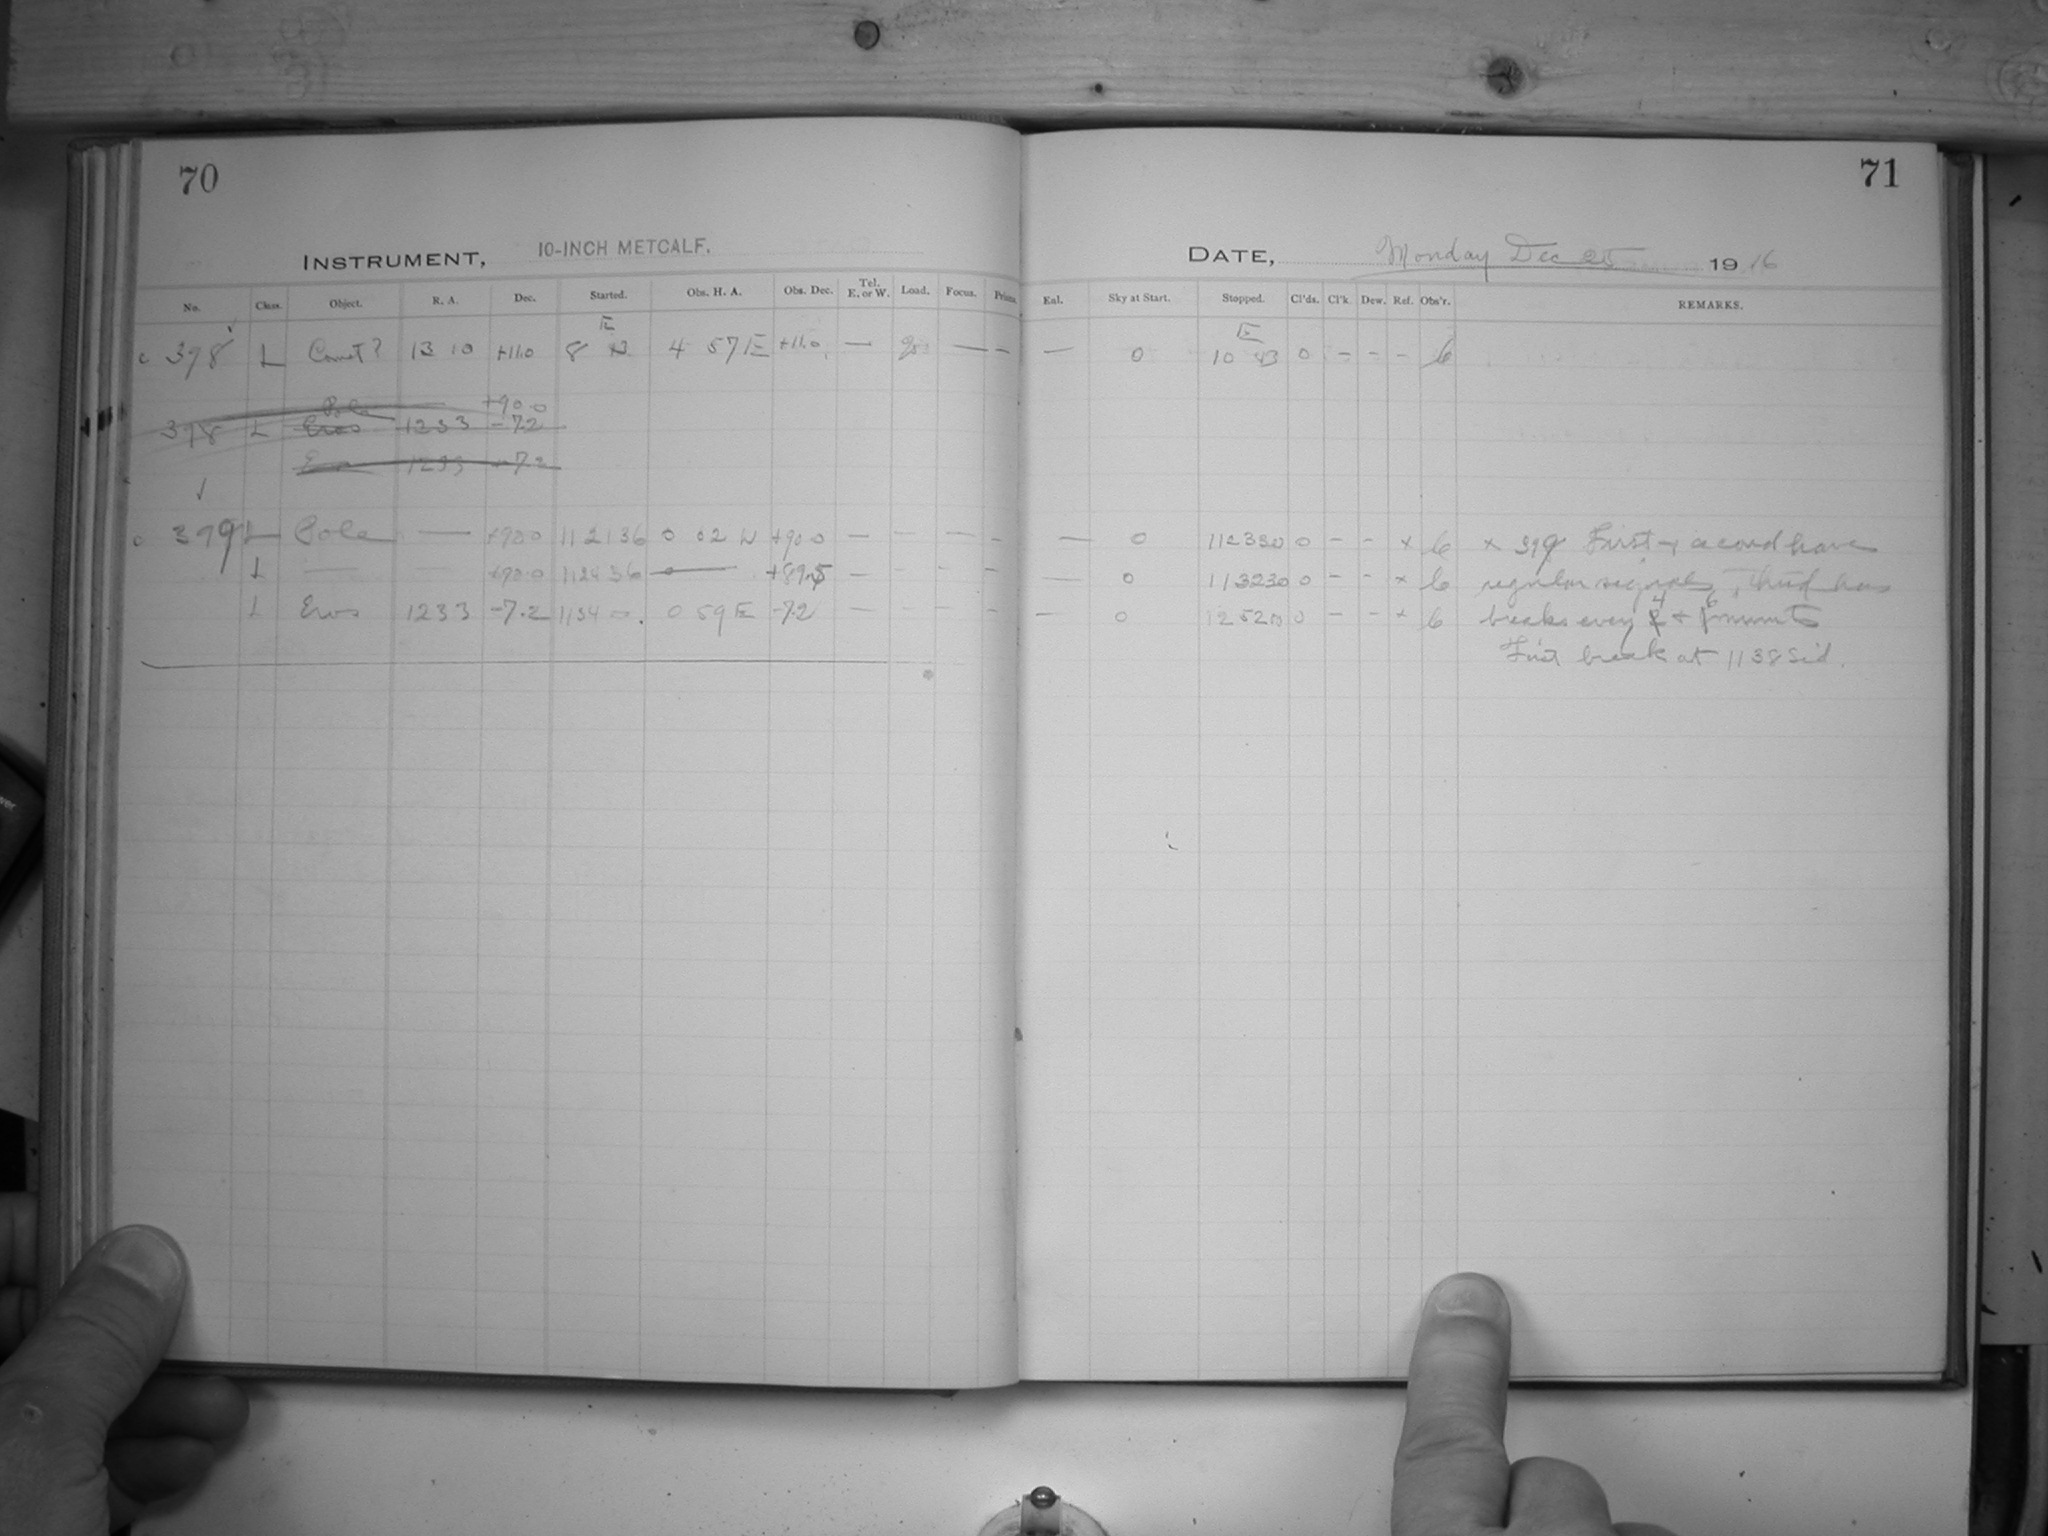 70
71
INSTRUMENT, 10-INCH METCALF.
DATE, Monday Dec 25 1916
No. Class. Object. R. A. Dec. Started. Obs. H. A. Obs. Dec. Tel. E. or W. Load. Focus. Prisms. Enl. Sky at Start. Stopped. Cl'ds. Cl'k. Dew. Ref. Obs'r. REMARKS.
E E
c 398 L Comet? 13 10 +11.0 8 4 57 E +11.0 — — — — 0 10 43 0 - - - 6
Pole +90.0
398 L Eros 1233 -7.2
1233 -7.2
c 399 L Pole — +90.0 112136 0 02 W +90.0 — — — - — 0 112330 0 - - x 6 x 399 First + second have
L — — +90.0 112436 — +89.5 — - — - — 0 113230 0 - - x 6 regular signals, Third has
L Eros 1233 -7.2 1134 0. 0 59 E -7.2 — - — - — 0 12520 0 - - x 6 breaks every 4 + 6 minutes
First break at 1138 Sid.